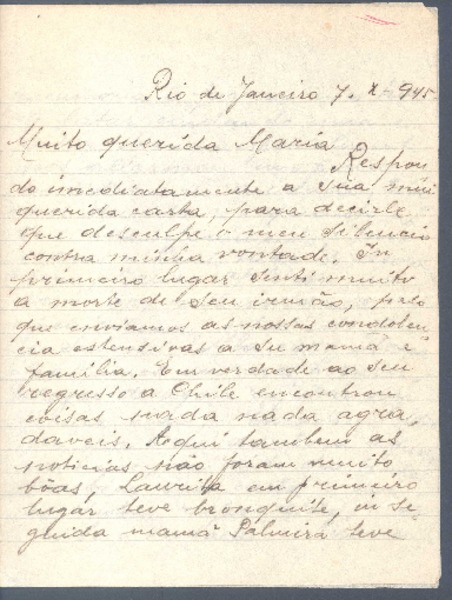 Rio de Janeiro 7. X - 945
Muito querida Maria
Respon
do imediatamente a sua mui
querida carta, para decirle
que desculpe o meu silencio
contra minha vontade. In
primeiro lugar senti muito
a morte de seu irmão, pelo
que enviamos as nossas condolen
cia estensivas a su mamá e
familia. Em verdade ao seu
regresso a Chile encontrou
coisas nada nada agra,
daveis. Aqui tambem as
noticias não foram muito
bôas, Laurita em primeiro
lugar teve bronquite, in se
guida mamá Palmira teve